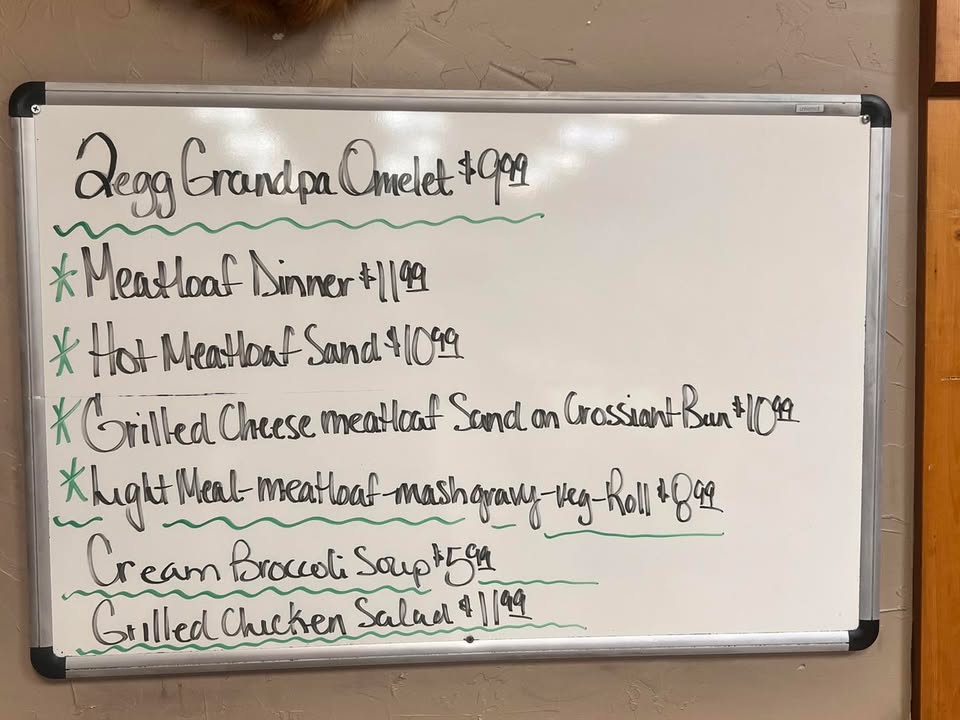 2egg Grandpa Omelet $9.99
* Meatloaf Dinner $11.99
* Hot Meatloaf Sand $10.99
* Grilled Cheese meatloaf Sand on Crossiant Bun $10.99
* Light Meal-meatloaf-mash gravy-veg-Roll $8.99
Cream Broccoli Soup $5.99
Grilled Chicken Salad $11.99